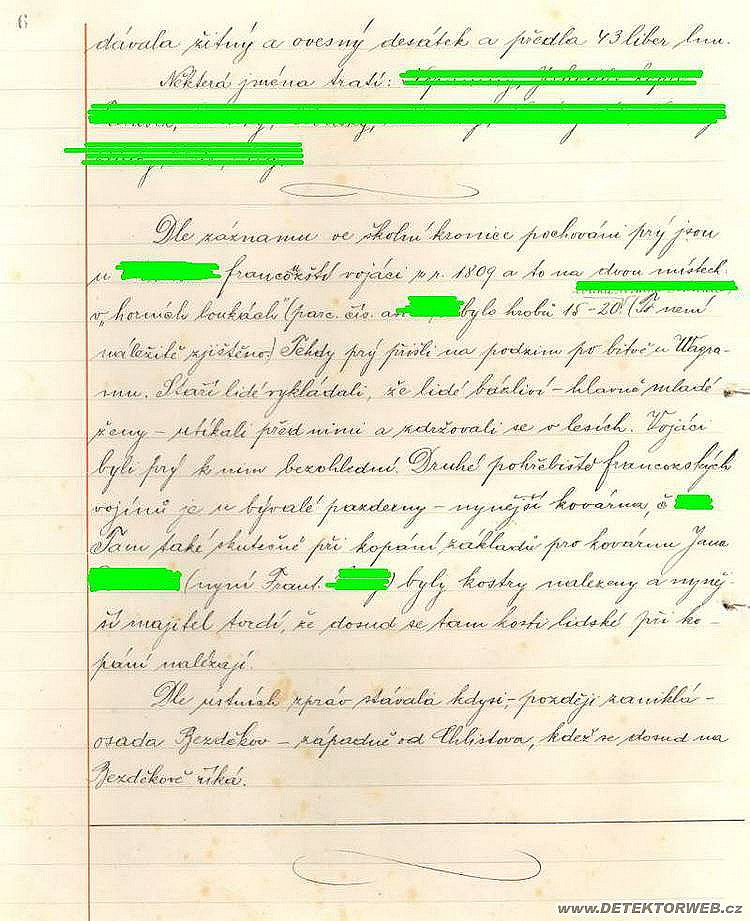 6
dávala žitný a ovesný desátek a předla 43 liber lnu.
Některá jména tratí:
Dle záznamu ve školní kronice pochováni prý jsou
u francouzští vojáci z r. 1809 a to na dvou místech.
v "horních loukách" (parc. čís. bylo hrobů 15-20. (To není
náležitě zjištěno.) Tehdy prý přišli na podzim po bitvě u Wagra-
mu. Staří lidé vykládali, že lidé bázliví - hlavně mladé
ženy - utíkali před nimi a zdržovali se v lesích. Vojáci
byli prý k nim bezohlední. Druhé pohřebiště francouzských
vojínů je u bývalé pazderny - nynější kovárna, č
Tam také skutečně při kopání základů pro kovárnu Jana
(nyní Frant. ) byly kostry nalezeny a nyněj-
ší majitel tvrdí, že dosud se tam kosti lidské při ko-
pání nalézají.
Dle ústních zpráv stávala kdysi, - později zaniklá -
osada Bezděkov - západně od Chlistova, kdež se dosud na
Bezděkově říká.
www.DETEKTORWEB.cz